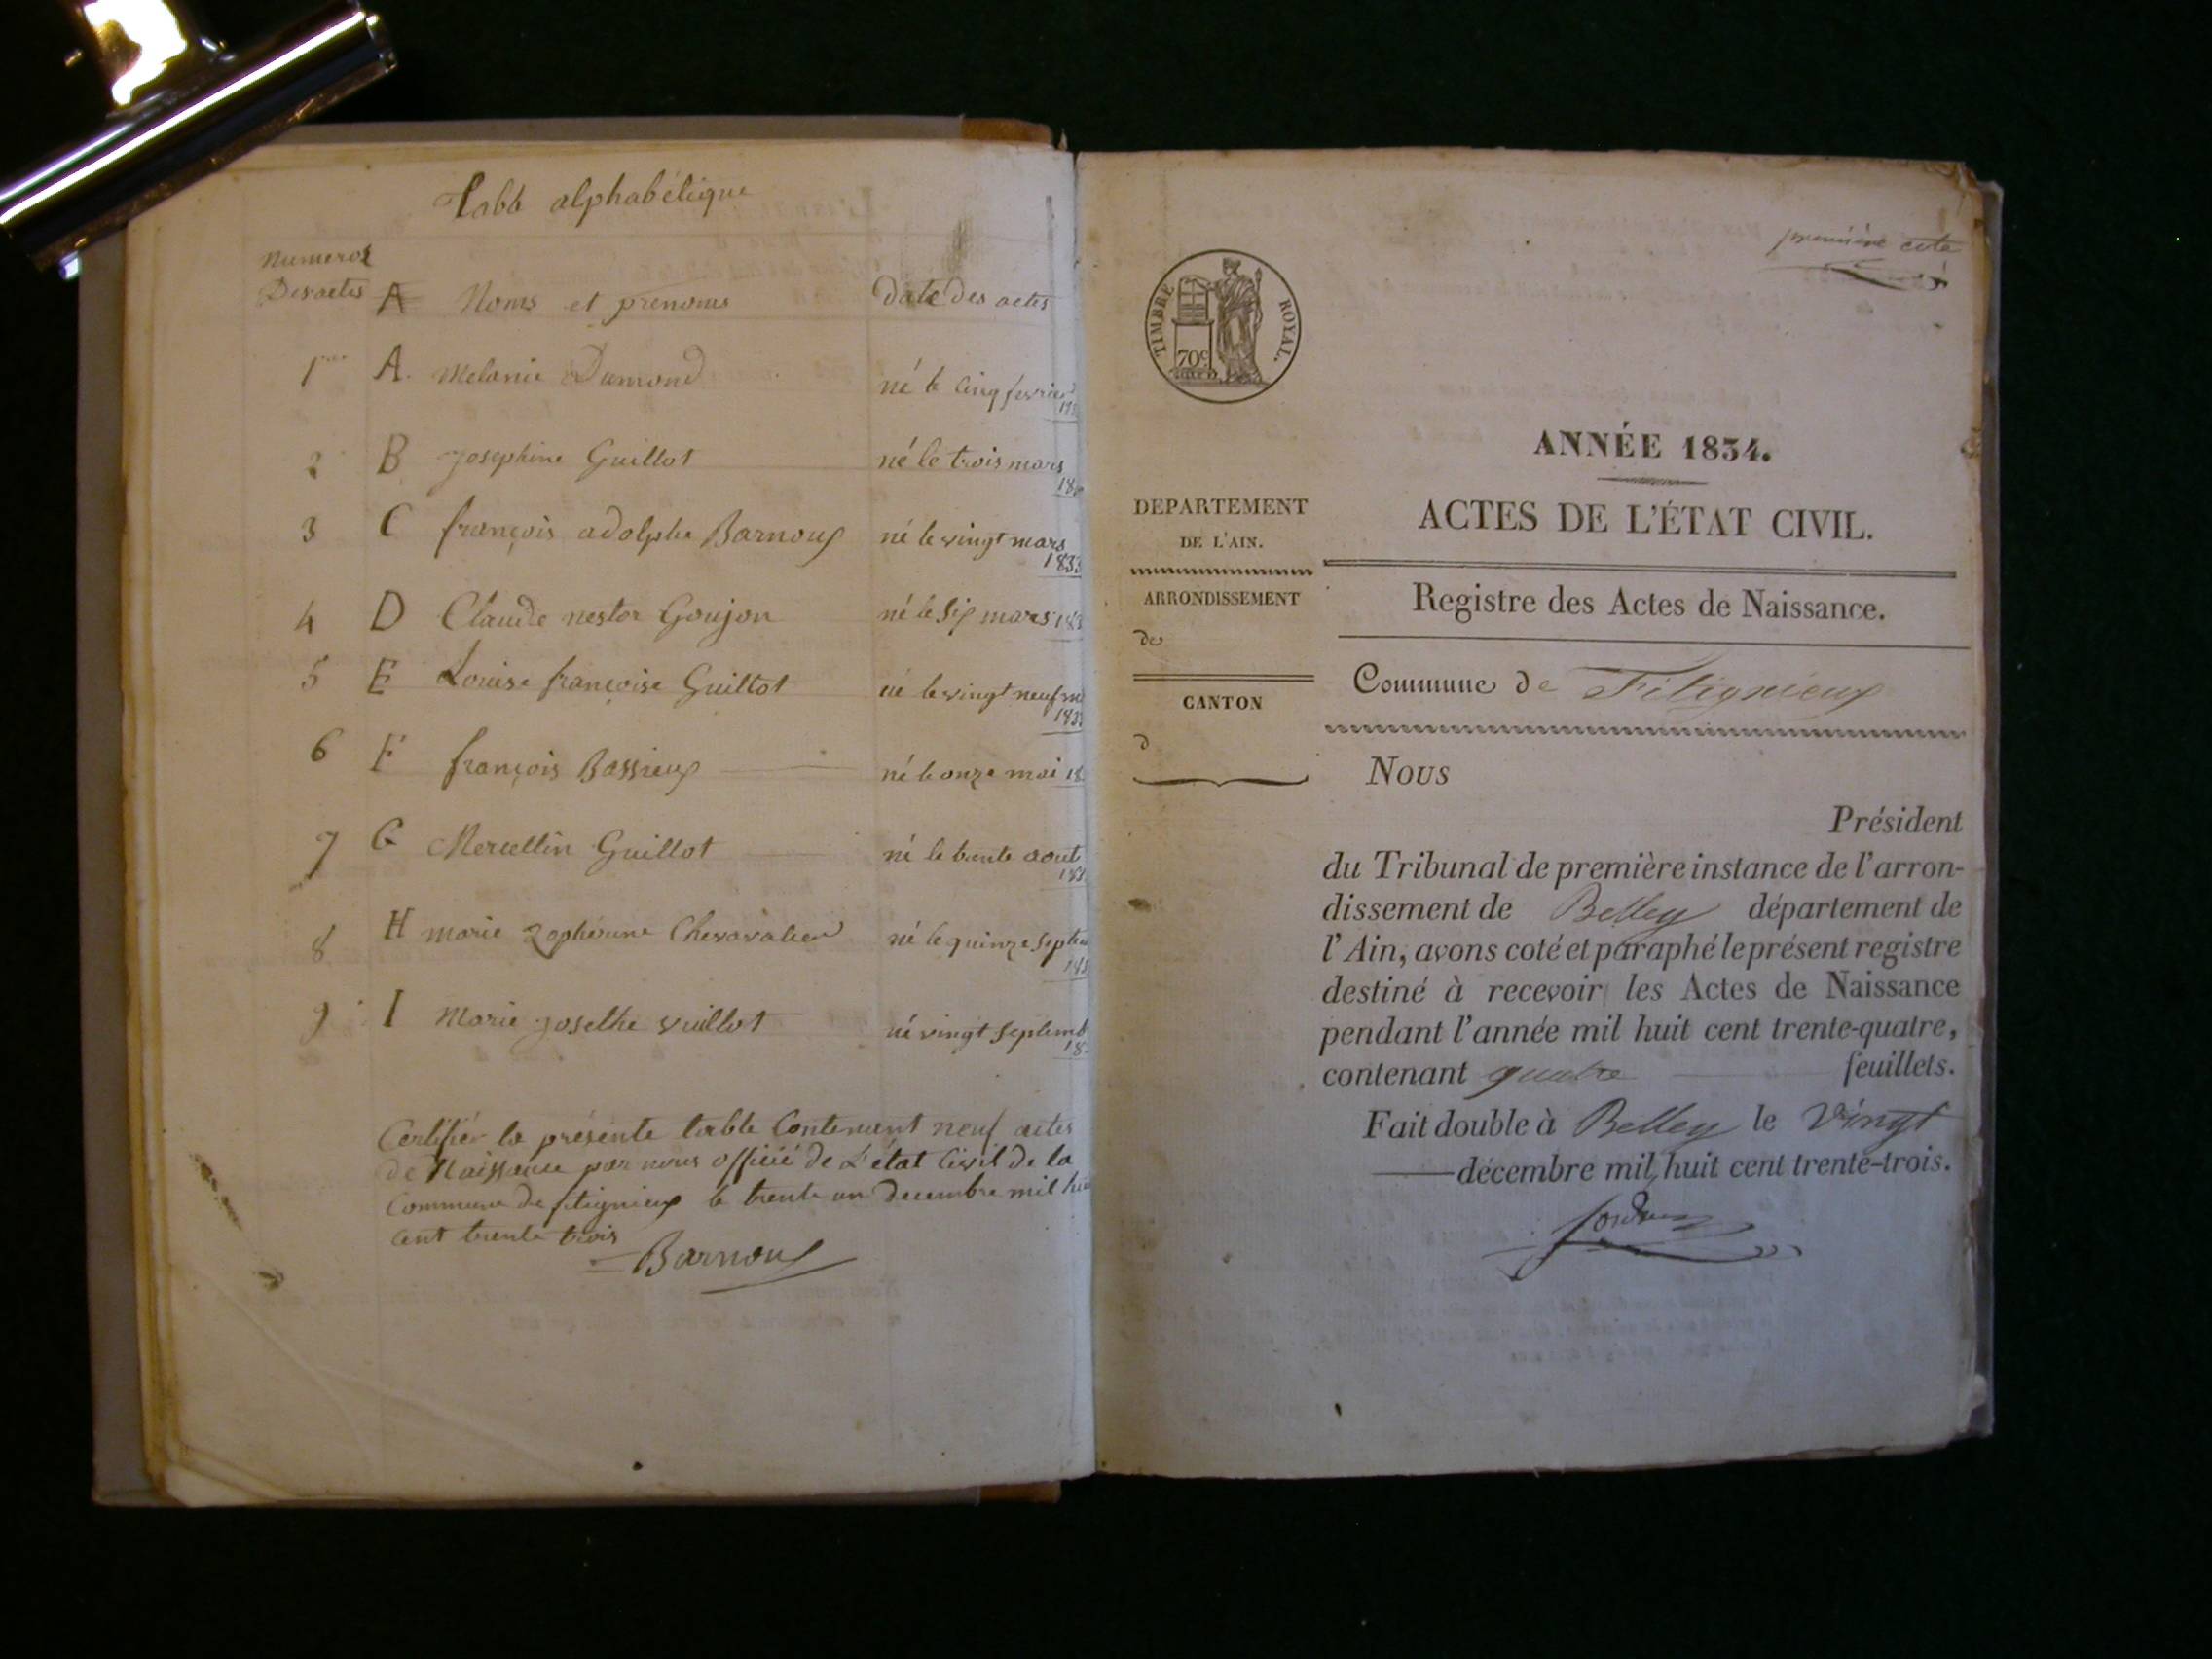 Table alphabétique
Numeros
Des actes A Noms et prenoms date des actes
1er A. Melanie Dumond né le cinq fevrier
2 B Josephine Guillot né le trois mars
18
3 C françois adolphe Barnoux né le vingt mars
1833
4 D Claude nestor Goujon né le six mars 183
5 E Louise françoise Guillot né le vingt neuf m
1833
6 F françois Bassieux né le onze mai 18
7 G Mercellin Guillot né le trente aout
183
8 H marie Zopherine Chevavalier né le quinze septem
183
9 I Marie josethe vuillot né vingt septemb
18
Certifier la présente table Contenant neuf actes
de Naissance par nous officié de L'état Civil de la
Commune de fitignieux le trente un decembre mil hui
cent trente trois
Barnoux
première cote
TIMBRE ROYAL.
70c
ANNÉE 1834.
DEPARTEMENT
DE L'AIN.
ACTES DE L'ÉTAT CIVIL.
ARRONDISSEMENT
de
Registre des Actes de Naissance.
CANTON
d
Commune de Fitignieux
Nous
Président
du Tribunal de première instance de l'arron-
dissement de Belley département de
l'Ain, avons coté et paraphé le présent registre
destiné à recevoir les Actes de Naissance
pendant l'année mil huit cent trente-quatre,
contenant quatre feuillets.
Fait double à Belley le vingt
décembre mil huit cent trente-trois.